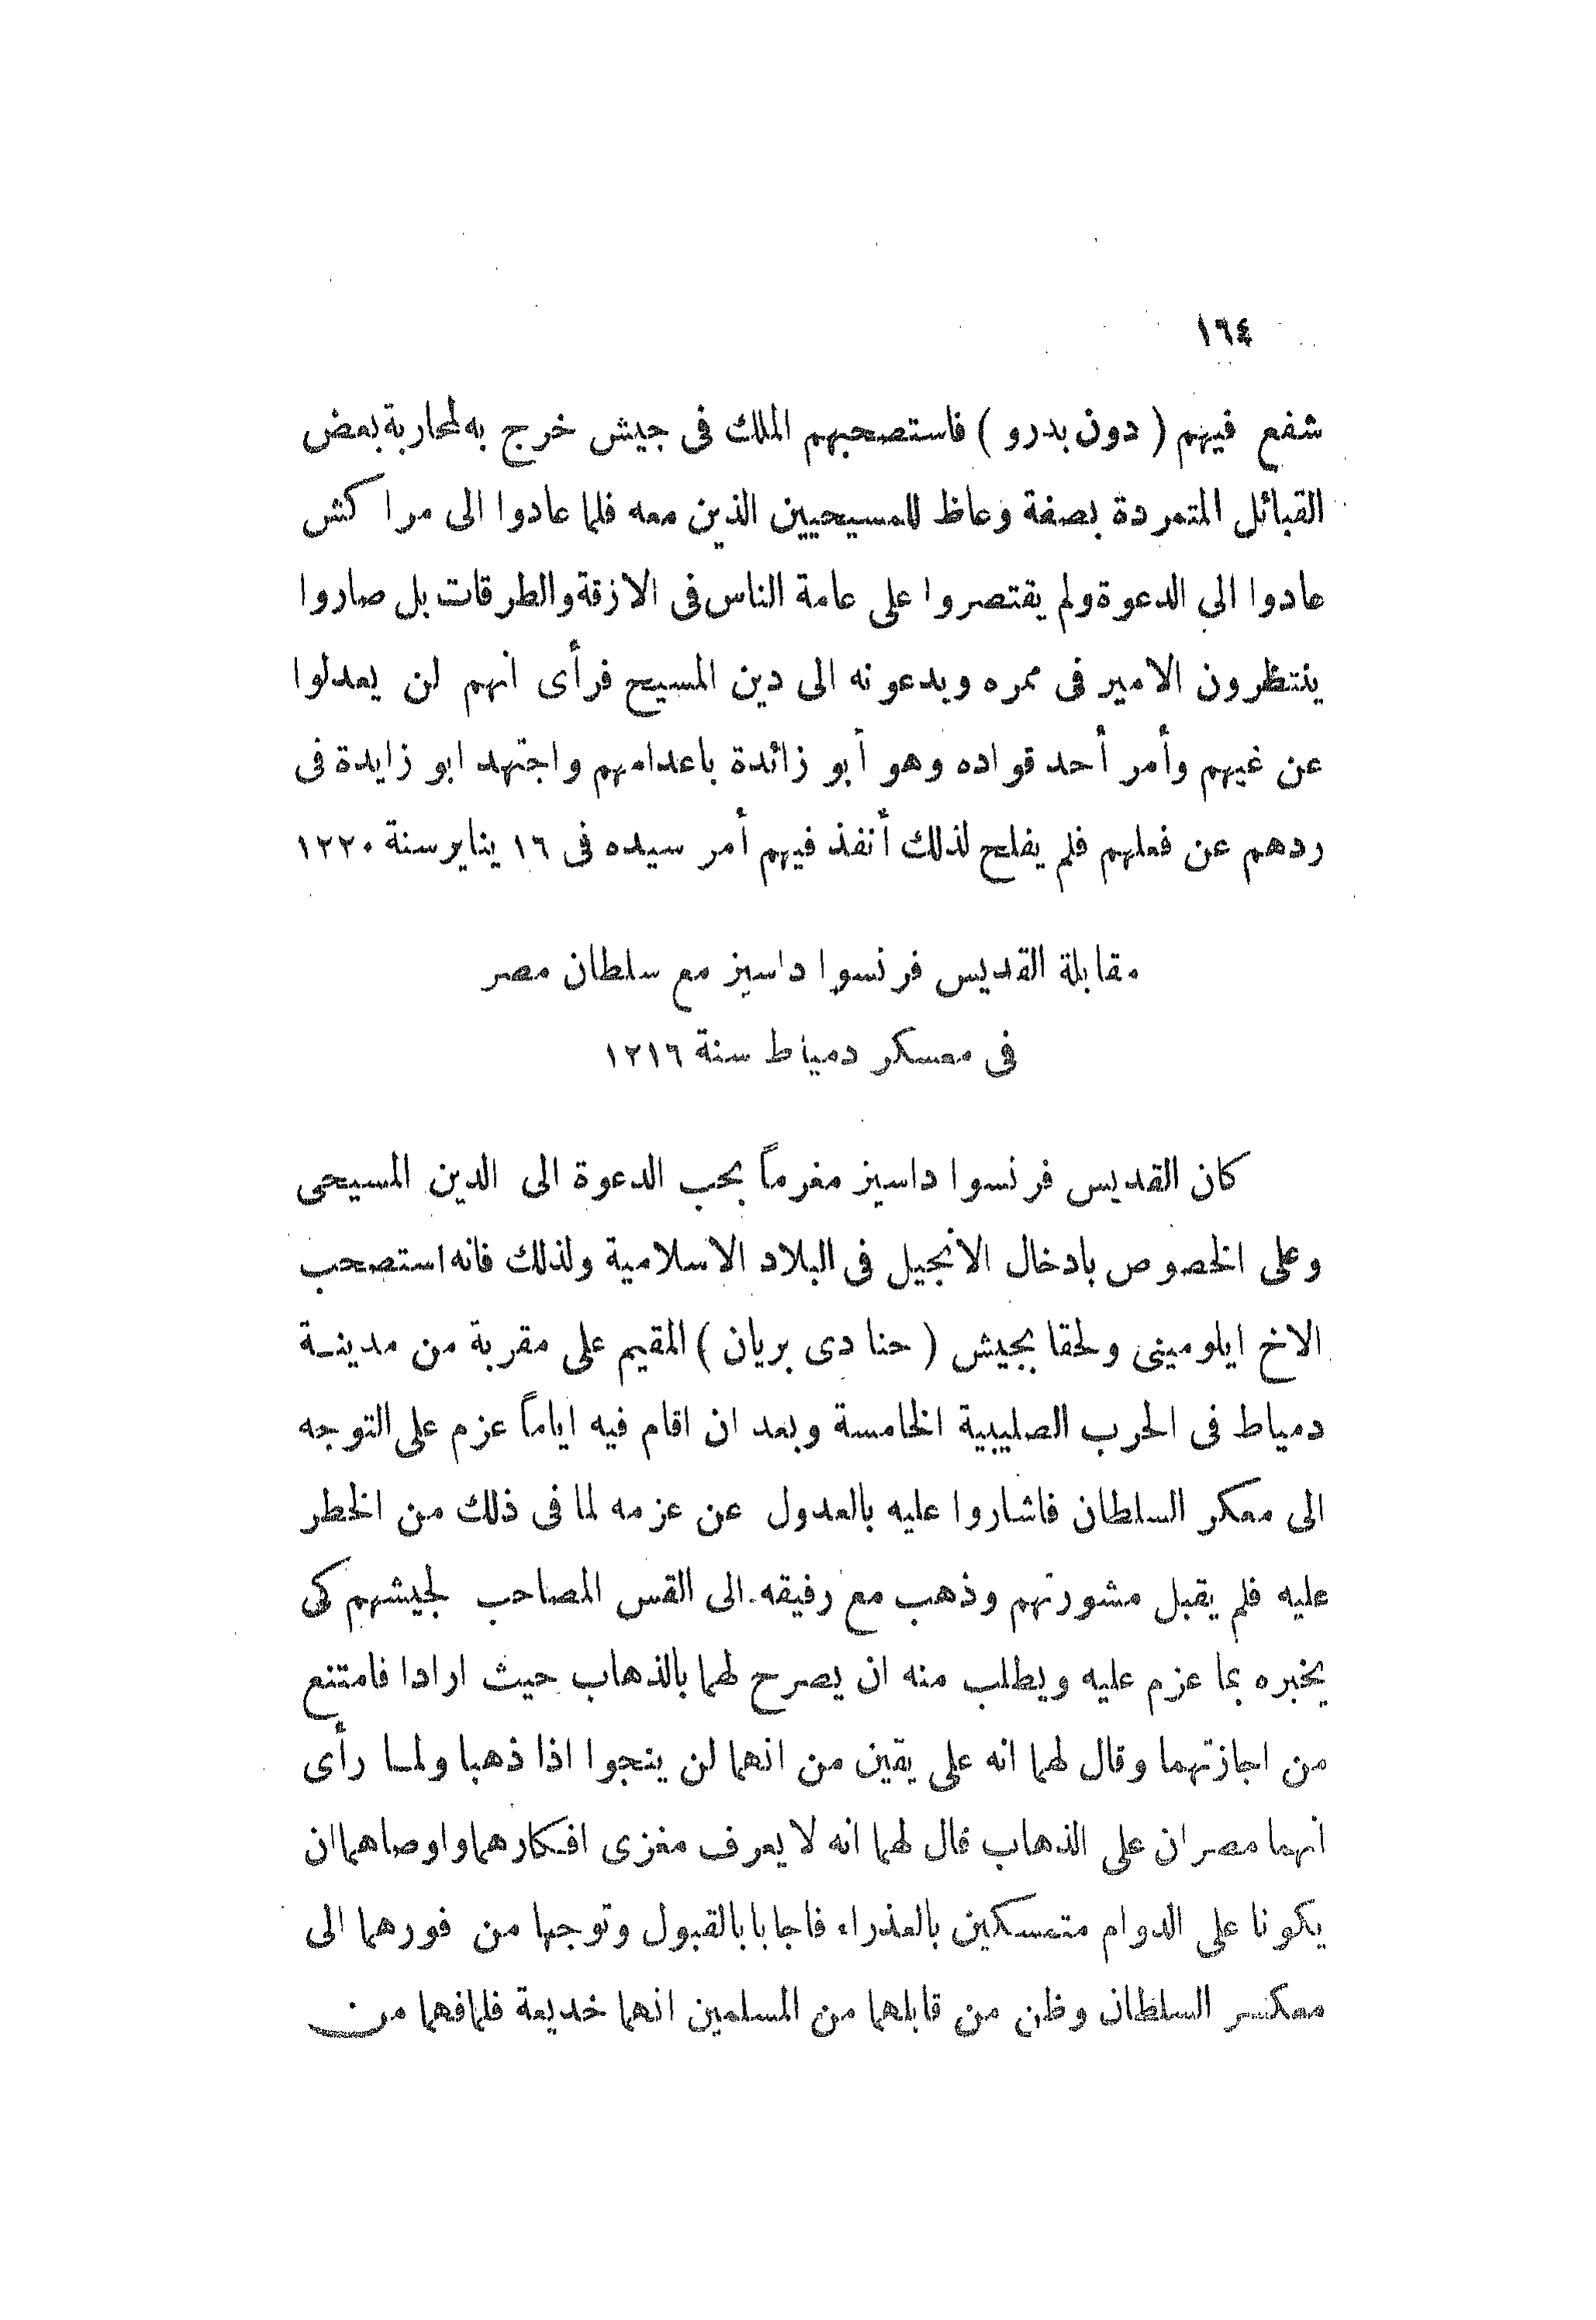 ١٦٤
شفع فيهم ( دون بدرو ) فاستصحبهم الملك فى جيش خرج به لمحاربة بعض
القبائل المتمردة بصفة وعاظ للمسيحيين الذين معه فلما عادوا الى مراكش
عادوا الى الدعوة ولم يقتصروا على عامة الناس فى الازقة والطرقات بل صاروا
ينتظرون الامير فى ممره ويدعونه الى دين المسيح فرأى انهم لن يعدلوا
عن غيهم وأمر أحد قواده وهو أبو زائدة باعدامهم واجتهد ابو زايدة فى
ردهم عن فعلهم فلم يفلح لذلك أنفذ فيهم أمر سيده فى ١٦ يناير سنة ١٢٢٠
مقابلة القديس فرنسوا داسيز مع سلطان مصر
فى معسكر دمياط سنة ١٢١٦
كان القديس فرنسوا داسيز مغرماً بحب الدعوة الى الدين المسيحى
وعلى الخصوص بادخال الانجيل فى البلاد الاسلامية ولذلك فانه استصحب
الاخ ايلومينى ولحقا بجيش ( حنا دى بريان ) المقيم على مقربة من مدينة
دمياط فى الحرب الصليبية الخامسة وبعد ان اقام فيه اياماً عزم على التوجه
الى معكر السلطان فاشاروا عليه بالعدول عن عزمه لما فى ذلك من الخطر
عليه فلم يقبل مشورتهم وذهب مع رفيقه الى القس المصاحب لجيشهم كى
يخبره بما عزم عليه ويطلب منه ان يصرح لهما بالذهاب حيث ارادا فامتنع
من اجازتهما وقال لهما انه على يقين من انهما لن ينجوا اذا ذهبا ولما رأى
انهما مصران على الذهاب قال لهما انه لا يعرف مغزى افكارهما واوصاهما ان
يكونا على الدوام متمسكين بالعذراء فاجابا بالقبول وتوجها من فورهما الى
معكر السلطان وظن من قابلهما من المسلمين انهما خديعة فلما فهما من